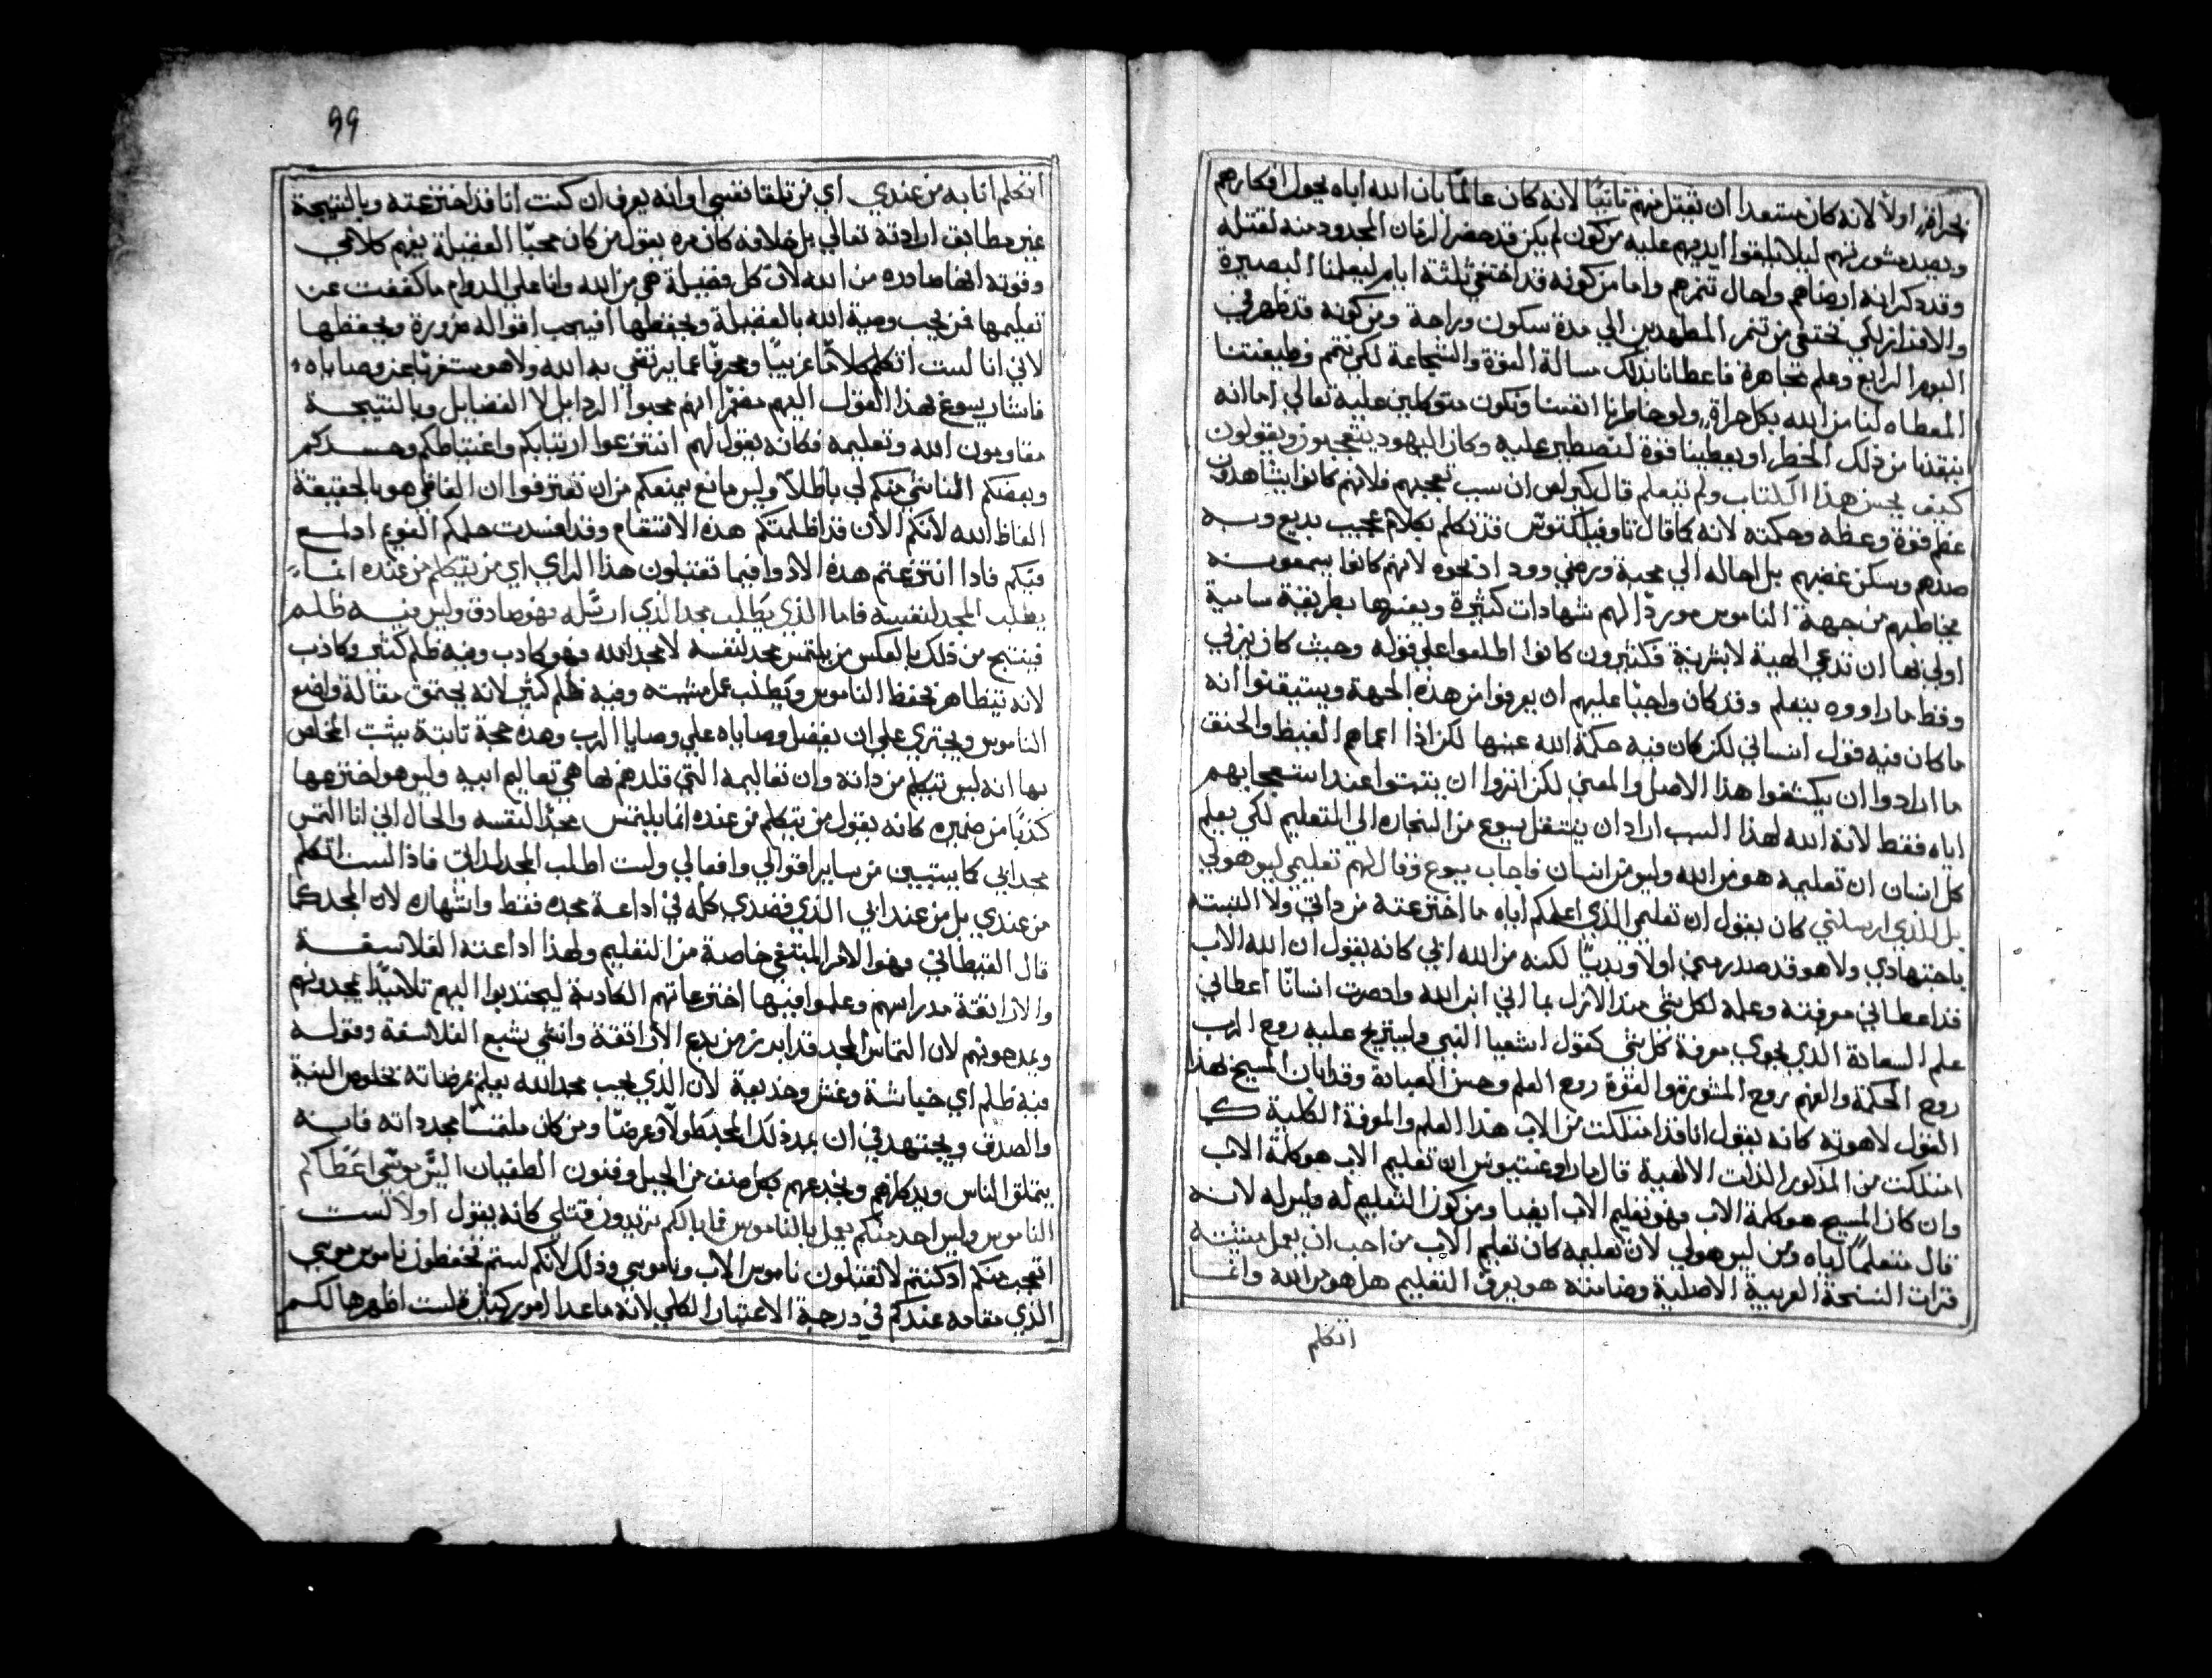 بجراةٍ اولاً لانه كان مستعدا ان يقتل منهم ثانيًا لانه كان عالمًا بان الله اباه يحول افكارهم
ويصد مشورتهم ليلا يلقوا ايديهم عليه من كون لم يكن قد حضر الزمان المحدود منه لقتله
وقد ذكر انه ارضاهم واحال تنمرهم واما من كونه قد اختفي ثلثة ايام ليعلمنا البصيرة
والافراز لكي نختفي من تنمر المطهدين الي مدة سكون وراحة ومن كونه قد ظهر في
اليوم الرابع وعلم مجاهرة فاعطانا بذلك مسالة القوة والشجاعة لكي نتمم وظيفتنا
المعطاه لنا من الله بكل جراةٍ ولو خاطرنا انفسنا ونكون متوكلين عليه تعالي اما انه
ينقذنا من ذلك الخطر او يعطينا قوة لنصطبر عليه وكان اليهود يتعجبون ويقولون
كيف يحسن هذا الكتاب ولم يتعلم قال كيرلص ان سبب تعجبهم فلانهم كانوا يشاهدون
عظم قوة وعظه وحكمته لانه كما قال تاوفيلكتوس قد تكلم بكلام عجيب بديع وبه
صدهم وسكن غضبهم بل احاله الي محبة ورضي وود اذ نحوه لانهم كانوا يسمعونه
يخاطبهم من جهة الناموس موردًا لهم شهادات كثيرة ويفسرها بطريقة سامية
اولي بها ان تدعي الهية لا بشرية فكثيرون كانوا اطلعوا علي قوله وحيث كان يربي
وقط ما راووه يتعلم وقد كان واجبًا عليهم ان يعرفوا من هذه الجهة ويستيقنوا انه
ما كان فيه قول انساني لكن كان فيه حكمة الله عينها لكن اذا اعماهم الغيظ والحنق
ما ارادوا ان يكشفوا هذا الاصل والمعني لكن اثروا ان يثبتوا عند استعجابهم
اياه فقط لانه الله لهذا السبب اراد ان ينتقل يسوع من النجاره الي التعليم لكي يعلم
كل انسان ان تعليمه هو من الله وليس من انسان فاجاب يسوع وقال لهم تعليمي ليس هو لي
بل للذي ارسلني كان يقول ان تعليمي الذي اعلمكم اياه ما اخترعته من ذاتي ولا اكتسبته
باجتهادي ولا هو قد صدر مني اولاً وبديًا لكنه من الله ابي كانه يقول ان الله الاب
قد اعطاني معرفته وعلمه لكل شي منذ الازل بما اني ابن الله واذ صرت انسانًا اعطاني
علم السعادة الذي يحوي معرفة كل شي كقول اشعيا النبي وليستريح عليه روح الرب
روح الحكمة والفهم روح المشورة والقوة روح العلم وحسن العبادة وقد ابان المسيح بهذا
القول لاهوته كانه يقول انا قد امتلكت من الاب هذا العلم والمعرفة الكلية كما
امتلكت من المذكور الذات الالهية قال ماراوغستيموس ان تعليم الاب هو كلمة الاب
وان كان المسيح هو كلمة الاب فهو تعليم الاب ايضا ومن كون التعليم له وليس له لانه
قال متعلمًا اياه ومن ليس هو لي لان تعليمه كان تعليم الاب من احب ان يعمل مشيته
قرات النسخة العربية الاصلية وضامنته هو يعرف التعليم هل هو من الله وانما
اتكلم
99
اتكلم انا به من عندي اي من تلقا نفسي اوانه يعرف ان كنت انا قد اخترعته وبالنتيجة
غير مطابق ارادته تعالي بل خلافه كان مره يقول من كان محبًا الفضيلة يفهم كلامي
وقوته انها صادره من الله لان كل فضيلة هي من الله وانا علي الدوام ما كففت عن
تعليمها فمن يحب وصية الله بالفضيلة ويحفظها افيحب اقواله مزورة ويحفظها
لاني انا لست اتكلم كلامًا غريبًا ومحرفًا عما يرتضي به الله ولا هو مستغربًا عن وصاياه
فاشار يسوع بهذا القول اليهم مضمرًا انهم محبوا الرذايل لا الفضايل وبالنتيجة
مقاومون الله وتعليمه فكانه يقول لهم انتزعوا ارتيابكم واغتباطكم وحسدكم
وبغضتكم المناشي منكم لي باطلاً وليس مانع يمنعكم من ان تعترفوا ان الفاظي هو بالحقيقة
الفاظ الله لانكم الان قد اظلمتكم هذه الاسقام وقد افسدت حلمكم القويم اذ اسع
فيكم فاذا انتزعتم هذه الادوا فيما تقتبلون هذا الراي اي من يتكلم من عنده انما
يطلب المجد لنفسه فاما الذي يطلب مجد الذي ارسله فهو صادق وليس فيه ظلم
فينتج من ذلك بالعكس من يلتمس مجد لنفسه لا مجد الله فهو كادب وفيه ظلم كثير وكاذب
لانه يتظاهر بحفظ الناموس ويطلب عمل مشيته وفيه ظلم كثير لانه يحتمق مقالة واضع
الناموس ويجتري علي ان يفضل وصاياه علي وصايا الرب وهذه حجة ثابتة يثبت المخلص
بها انه ليس يتكلم من ذاته وان تعاليمه التي قلدهم بها هي تعاليم ابيه وليس هو اخترعها
كذبًا من ضميره كانه يقول من يتكلم من عنده انما يلتمس مجدًا لنفسه والحال اني انا التمس
مجد ابي كما يستبين من ساير اقوالي وافعالي ولست اطلب المجد لذاتي فاذا لست اتكلم
من عندي بل من عند ابي الذي قصدي كله في اذاعة مجده فقط واشهاره لان المجد كما
قال القبطاني فهو الامر المبتغي خاصة من التعليم ولهذا اداعته الفلاسفة
والاراتقة مدراسهم وعلموا فيها اختراعاتهم الكادبة ليجتدبوا اليهم تلاميذًا يمجدونهم
ويمدحونهم لان التماس المجد قد ابدرز من بدع الاراتقة وانشي بشبع الفلاسفة وقوله
فيه ظلم اي خباشة وغش وخديعة لان الذي يحب مجد الله يعلم مرضاته بخلوص النية
والصدق ويجتهد في ان يمد ذلك المجد طولاً وعرضًا ومن كان ملتمسًا مجد داته فانه
يتملق الناس ويخدعهم بكل صنف من الحيل وفنون الطغيان اليس موسي اعطاكم
الناموس وليس احد منكم يعمل بالناموس فما بالكم تريدون قتلي كانه يقول اولاً لست
اتعجب منكم اذ كنتم لا تقبلون ناموس الاب وناموسي وذلك لانكم لستم تحفظون ناموس موسي
الذي مقامه عندكم في درجة الاعتبار الكلي لانه ما عدا امور كثيرة لست اظهرها لكم